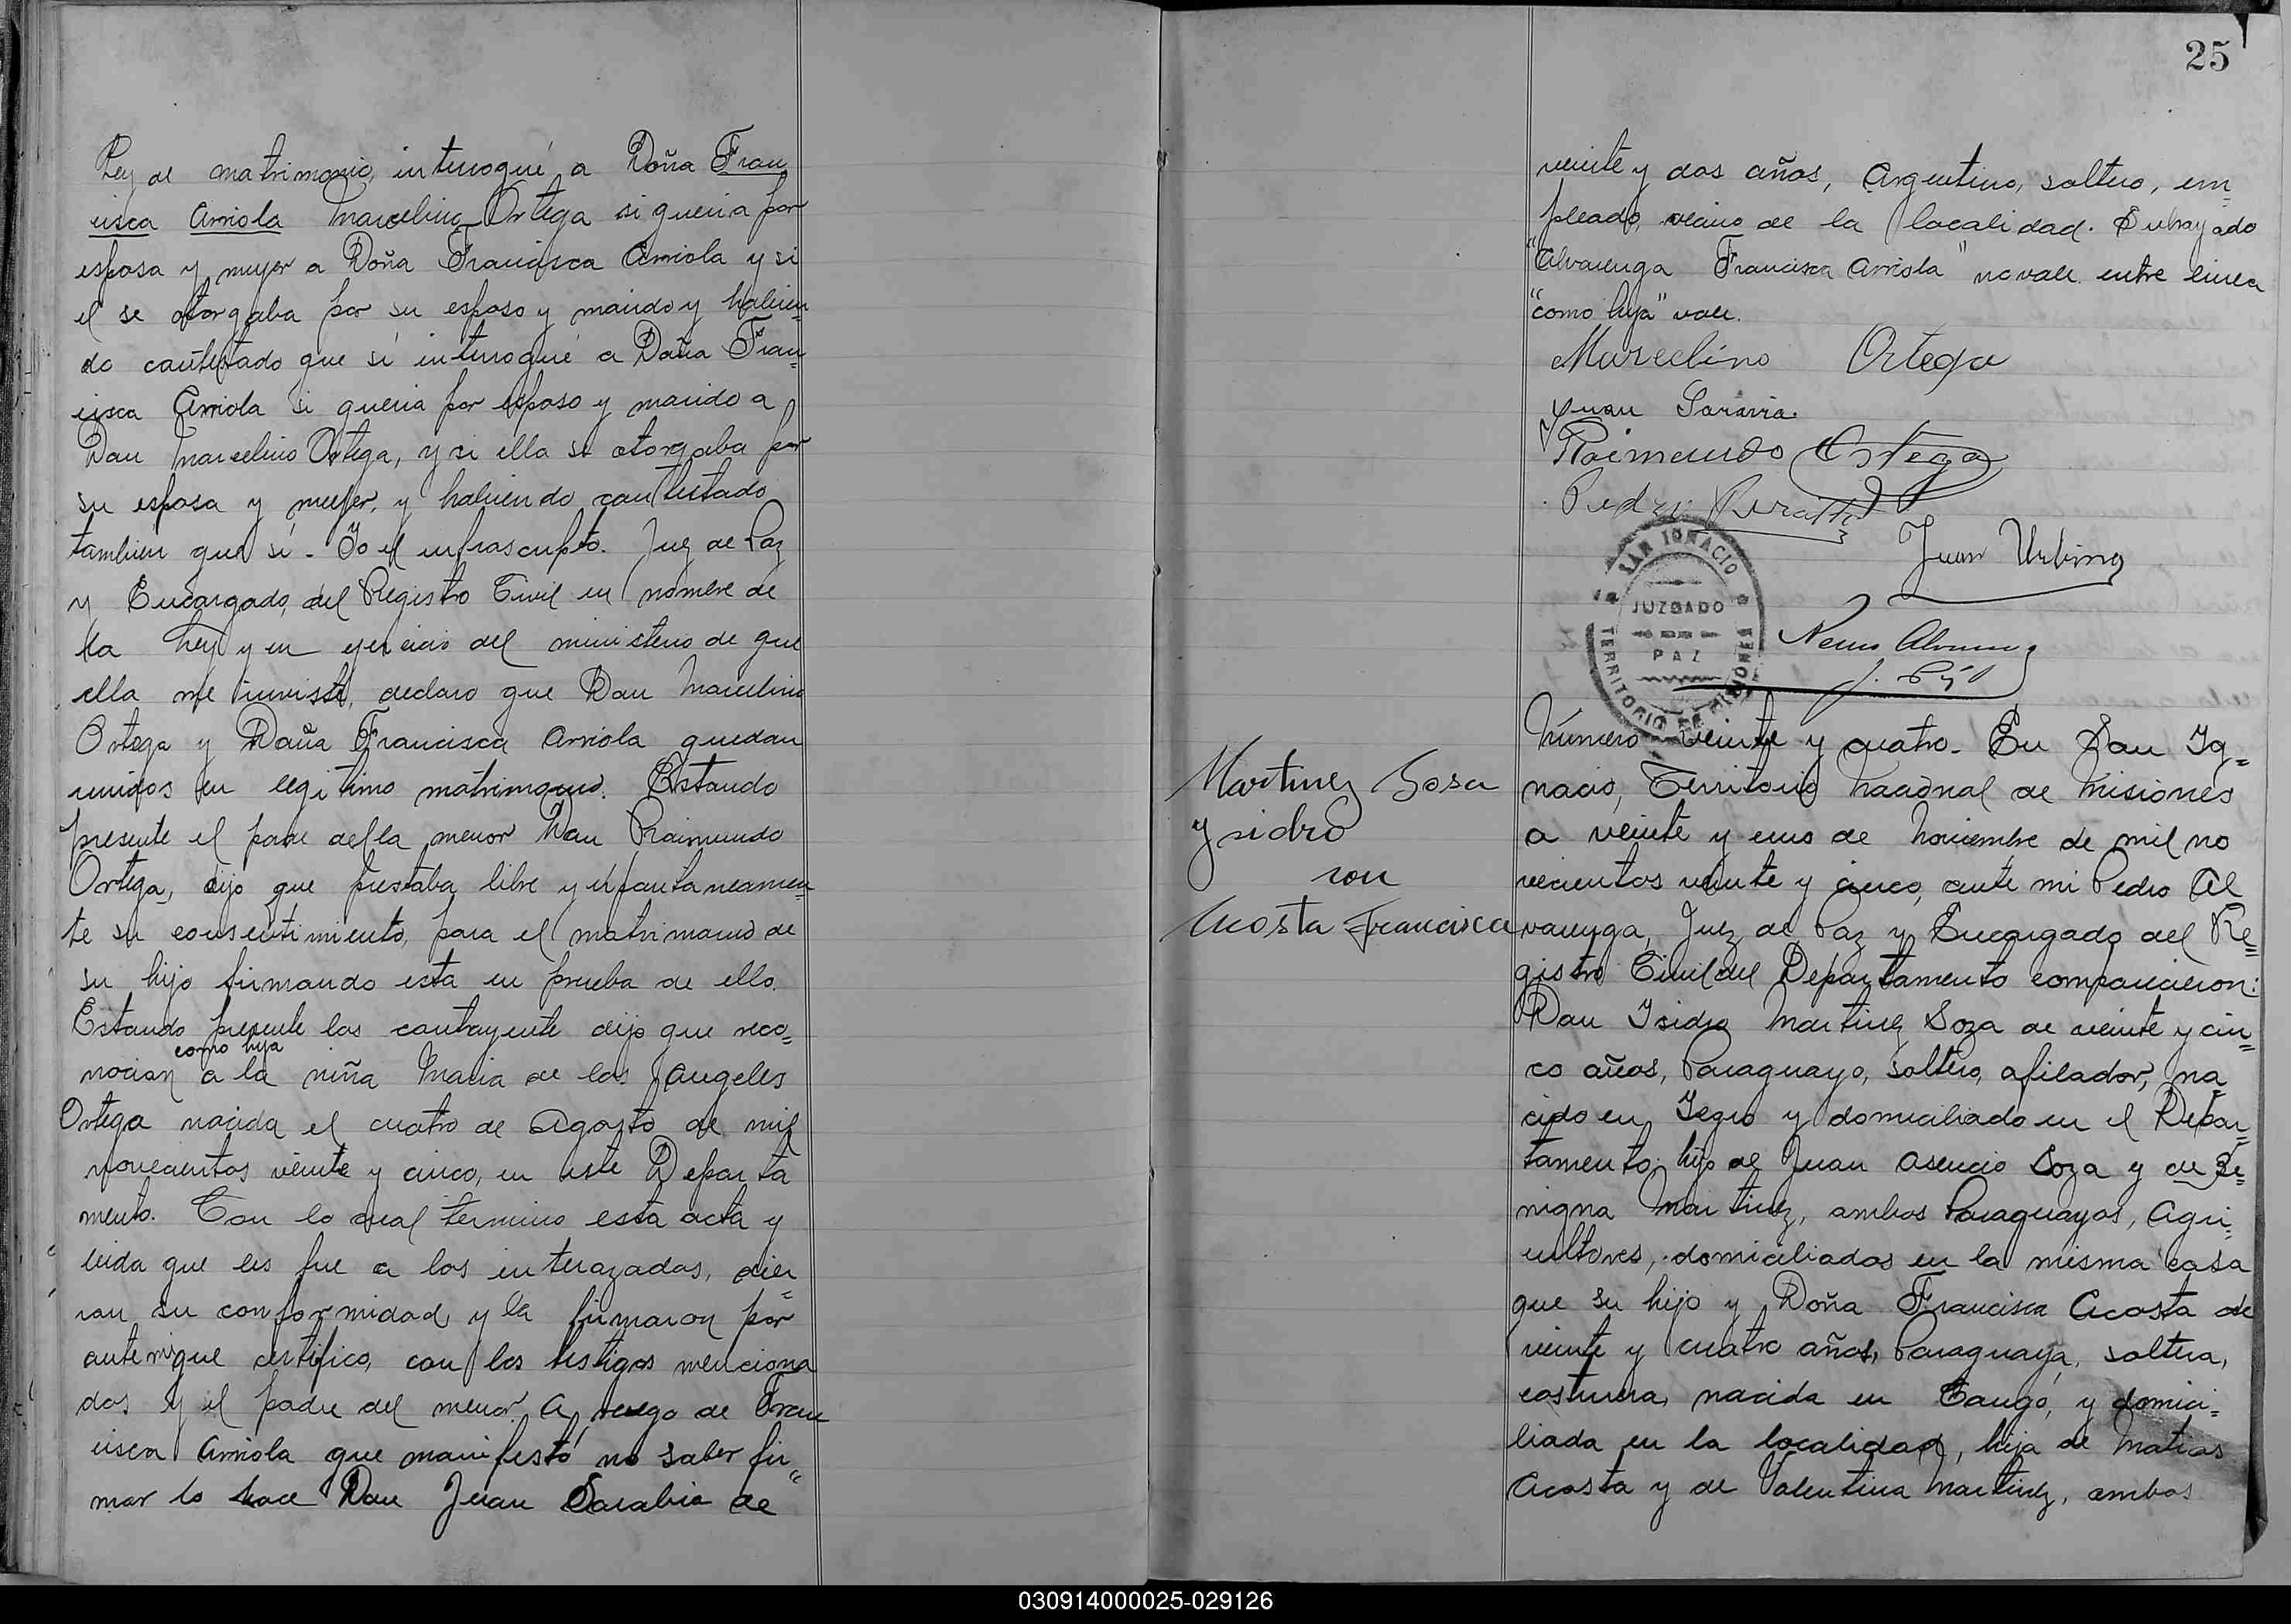 Ley de matrimonio, interrogué a Doña Fran
cisca Arriola Marcelino Ortega si queria por
esposa y mujer a Doña Francisca Arriola y si
el se otorgaba por su esposo y marido y habien-
do contestado que sí interrogué a Doña Fran-
cisca Arriola si queria por esposo y marido a
Don Marcelino Ortega, y si ella se otorgaba por
su esposa y mujer, y habiendo contestado
tambien que sí - Yo el infrascripto. Juez de Paz
y Encargado del Registro Civil en nombre de
la Ley y en ejercicio del ministerio de que
ella me inviste, declaro que Don Marcelino
Ortega y Doña Francisca Arriola quedan
unidos en legitimo matrimonio. Estando
presente el padre del la menor Don Raimundo
Ortega, dijo que prestaba libre y espontaneamen-
te su consentimiento, para el matrimonio de
su hijo firmando esta en prueba de ello.
Estando presente los contrayente dijo que reco-
como hija
nocian a la niña Maria de los Angeles
Ortega nacida el cuatro de Agosto de mil
novecientos veinte y cinco, en este Departa
mento. Con lo cual termino esta acta y
leida que les fue a los interazados, dier
ron su conformidad y la firmaron por
ante mi que certifico, con los testigos menciona
dos y el padre del menor. A ruego de Fran
cisca Arriola que manifestó no saber fir-
mar lo hace Don Juan Sarabia de
25
veinte y dos años, Argentino, soltero, em-
pleado, vecino de la localidad. Subrayado
"Alvarenga Francisca Arriola" no vale. entre linea
"como hija" vale.
Marcelino Ortega
Juan Saravia.
Raimundo Ortega
Pedro
Juan Urbina
SAN IGNACIO
JUZGADO
DE
PAZ
TERRITORIO DE MISIONES
J. Paz
Número veinte y cuatro. En San Ig-
nacio, Territorio Nacional de Misiones
a veinte y uno de Noviembre de mil no
vecientos veinte y cinco, ante mi Pedro Al
varenga, Juez de Paz y Encargado del Re-
gistro Civil del Departamento comparecieron:
Don Isidro Martinez Soza de veinte y cin-
co años, Paraguayo, soltero, afilador, na
cido en Yegro y domiciliado en el Depar-
tamento, hijo de Juan Asencio Soza y de Be-
nigna Martinez, ambos Paraguayos, Agri-
cultores, domiciliados en la misma casa
que su hijo y Doña Francisca Acosta de
veinte y cuatro años, Paraguaya, soltera,
costurera, nacida en Cangó, y domici-
liada en la localidad, hija de Matias
Acosta y de Valentina Martinez, ambos
Martinez Sosa
Ysidro
con
Acosta Francisca
030914000025-029126